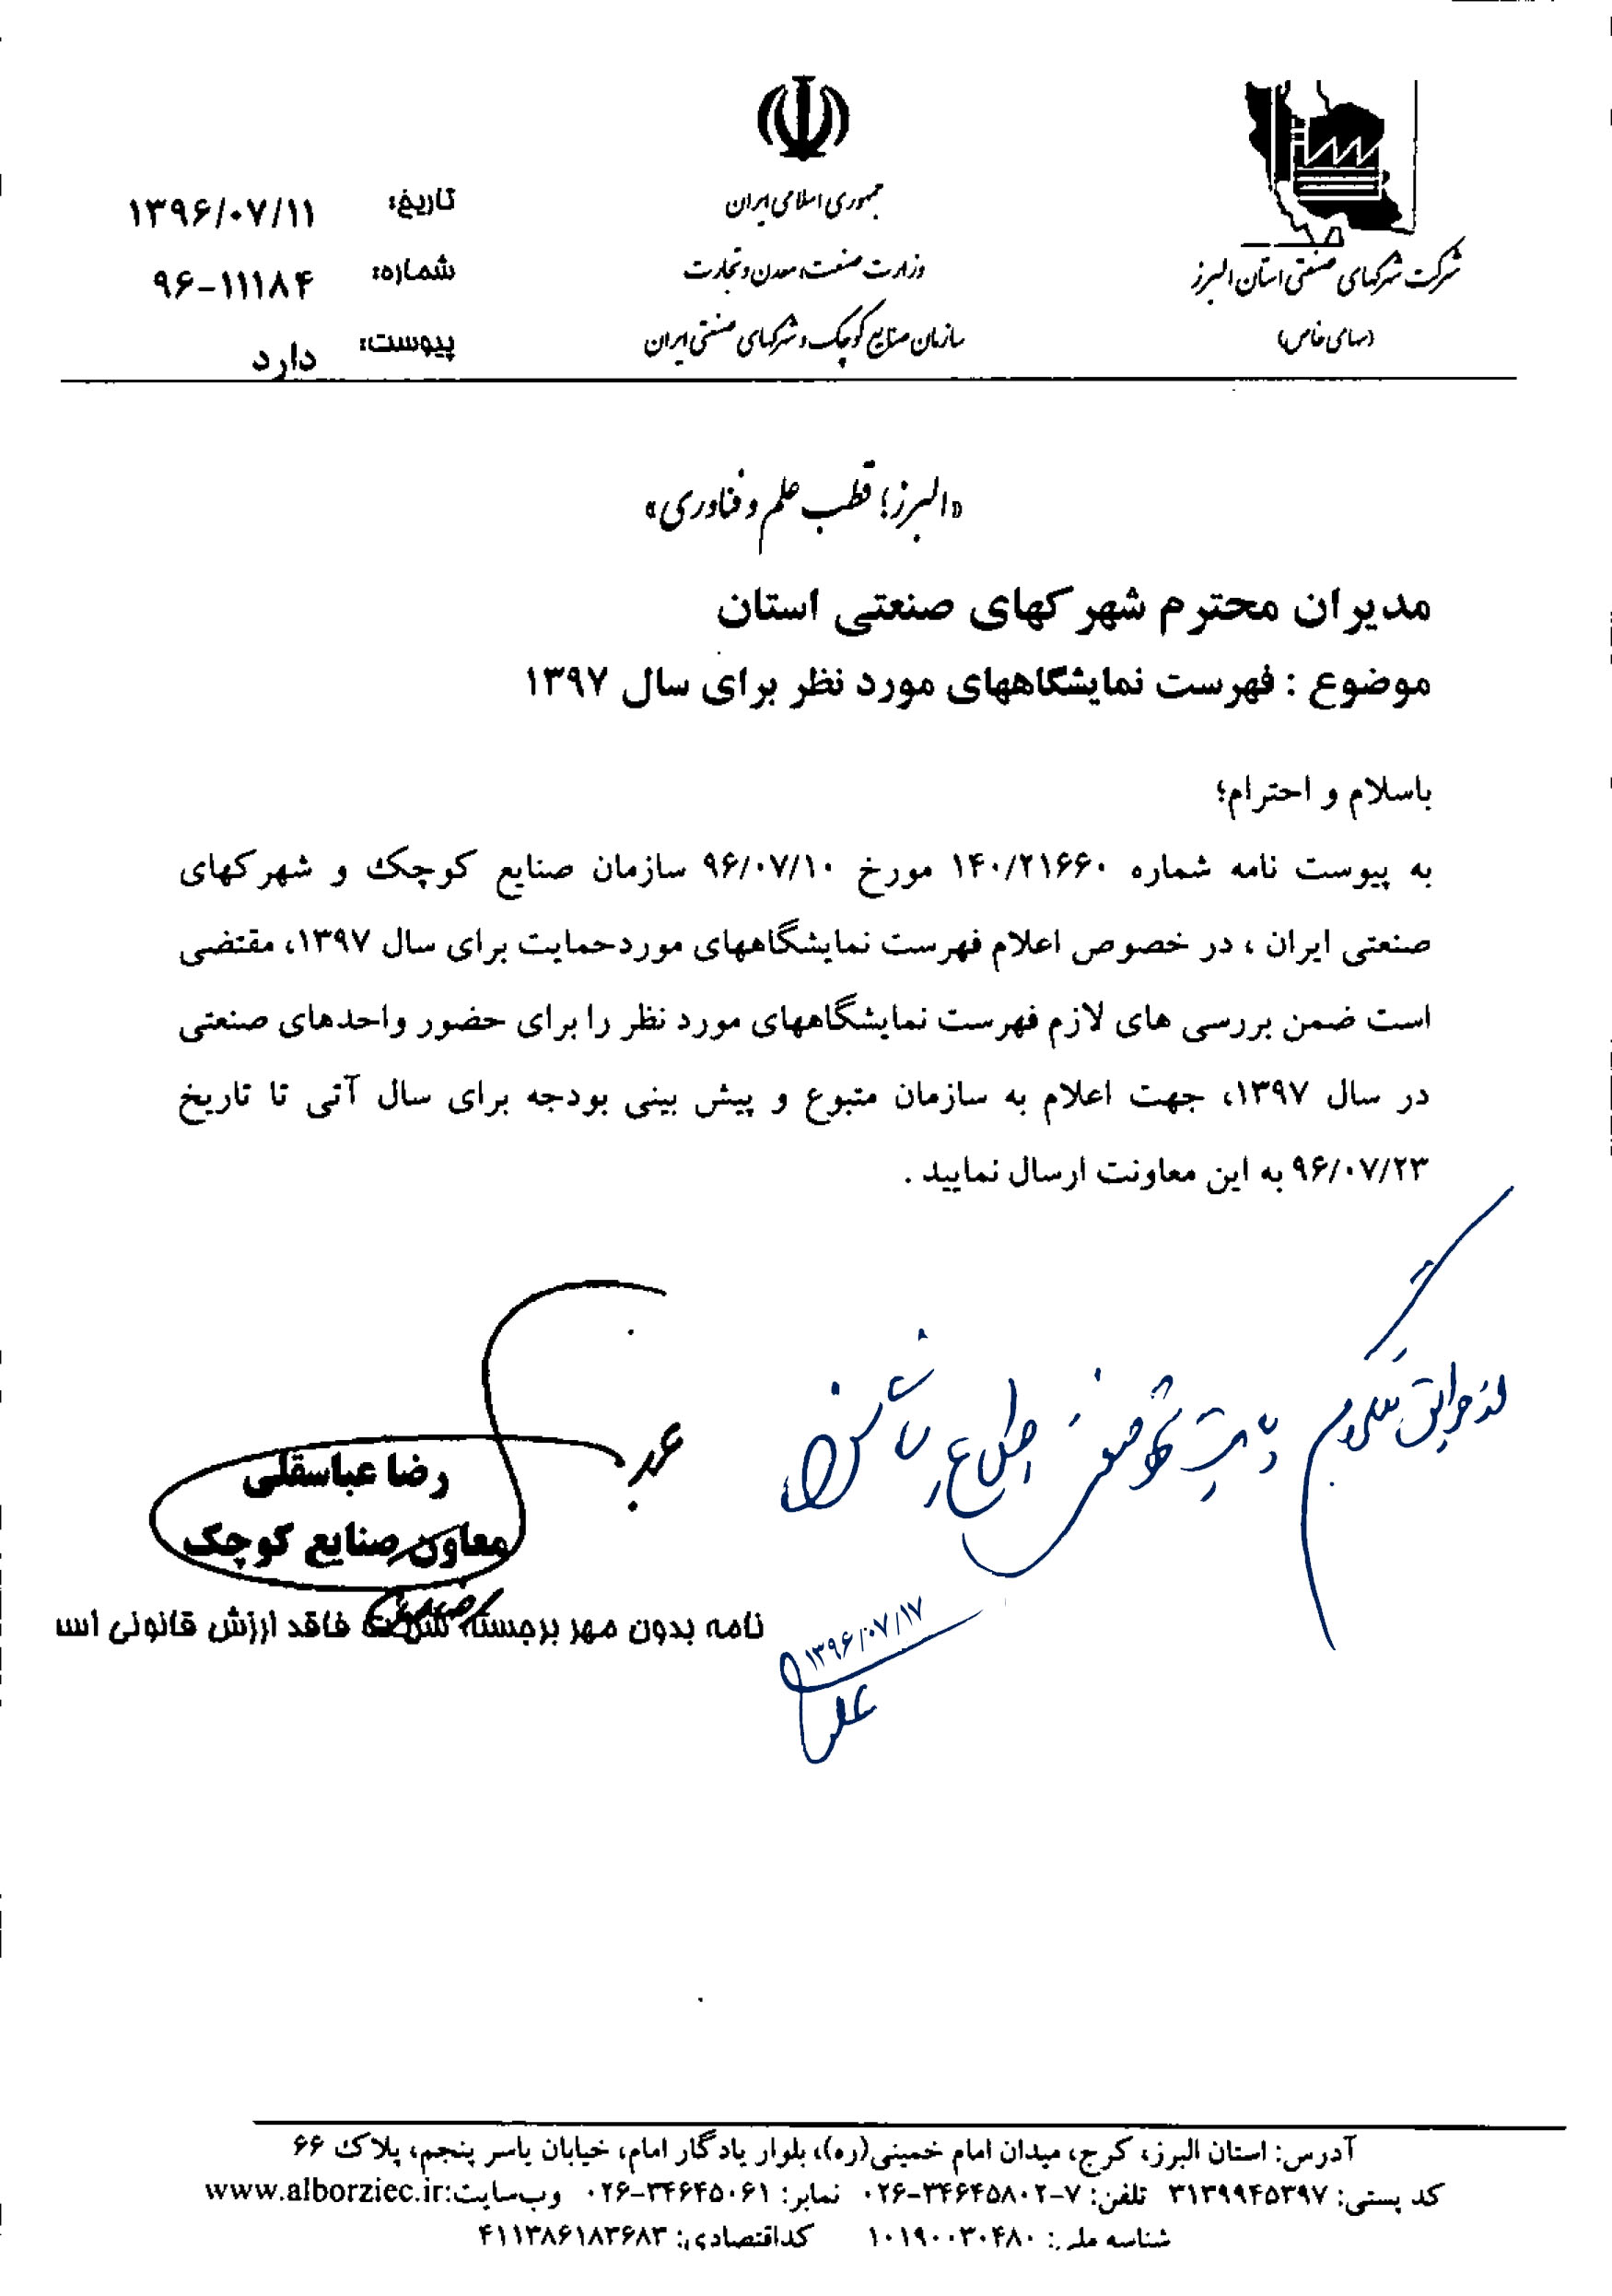 جمهوری اسلامی ایران
وزارت صنعت، معدن و تجارت
سازمان صنایع کوچک و شهرکهای صنعتی ایران
شرکت شهرکهای صنعتی استان البرز
(سهامی خاص)
تاریخ: ۱۳۹۶/۰۷/۱۱
شماره: ۹۶-۱۱۱۸۴
پیوست: دارد
«البرز؛ قطب علم و فناوری»
مدیران محترم شهرکهای صنعتی استان
موضوع : فهرست نمایشگاههای مورد نظر برای سال ۱۳۹۷
باسلام و احترام؛
به پیوست نامه شماره ۱۴۰/۲۱۶۶۰ مورخ ۹۶/۰۷/۱۰ سازمان صنایع کوچک و شهرکهای
صنعتی ایران ، در خصوص اعلام فهرست نمایشگاههای موردحمایت برای سال ۱۳۹۷، مقتضی
است ضمن بررسی های لازم فهرست نمایشگاههای مورد نظر را برای حضور واحدهای صنعتی
در سال ۱۳۹۷، جهت اعلام به سازمان متبوع و پیش بینی بودجه برای سال آتی تا تاریخ
۹۶/۰۷/۲۳ به این معاونت ارسال نمایید .
رضا عباسقلی
معاون صنایع کوچک
نامه بدون مهر برجسته شرکت فاقد ارزش قانونی اس
۱۳۹۶/۰۷/۱۷
آدرس: استان البرز، کرج، میدان امام خمینی(ره)، بلوار یادگار امام، خیابان یاسر پنجم، پلاک ۶۶
کد پستی: ۳۱۳۹۹۴۵۳۹۷ تلفن: ۷-۳۴۶۴۵۸۰۲-۰۲۶ نمابر: ۳۴۶۴۵۰۶۱-۰۲۶ وب‌سایت:www.alborziec.ir
شناسه ملی: ۱۰۱۹۰۰۳۰۴۸۰ کداقتصادی: ۴۱۱۳۸۶۱۸۳۶۸۳